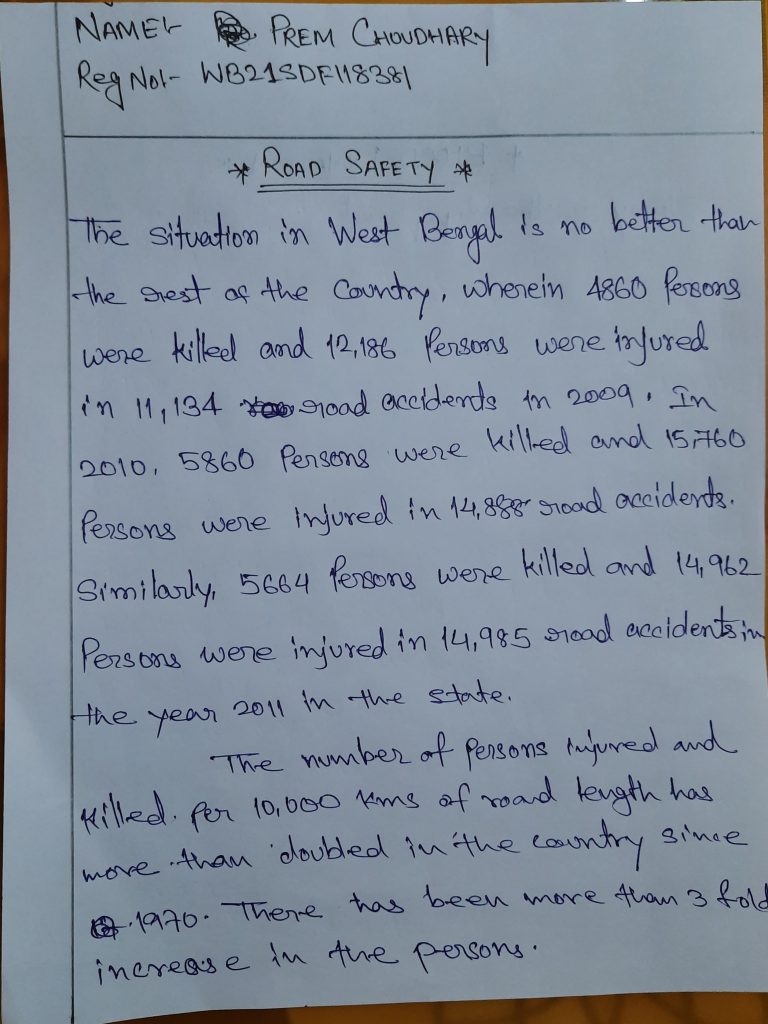 NAME:- PREM CHOUDHARY
Reg No:- WB21SDF118381
* ROAD SAFETY *
The situation in West Bengal is no better than
the rest of the Country, wherein 4860 Persons
were killed and 12,186 Persons were injured
in 11,134 road accidents in 2009. In
2010, 5860 Persons were killed and 15,760
Persons were injured in 14,888 road accidents.
Similarly, 5664 Persons were killed and 14,962
Persons were injured in 14,985 road accidents in
the year 2011 in the state.
The number of Persons injured and
killed. Per 10,000 kms of road length has
more than doubled in the country since
1970. There has been more than 3 fold
increase in the persons.